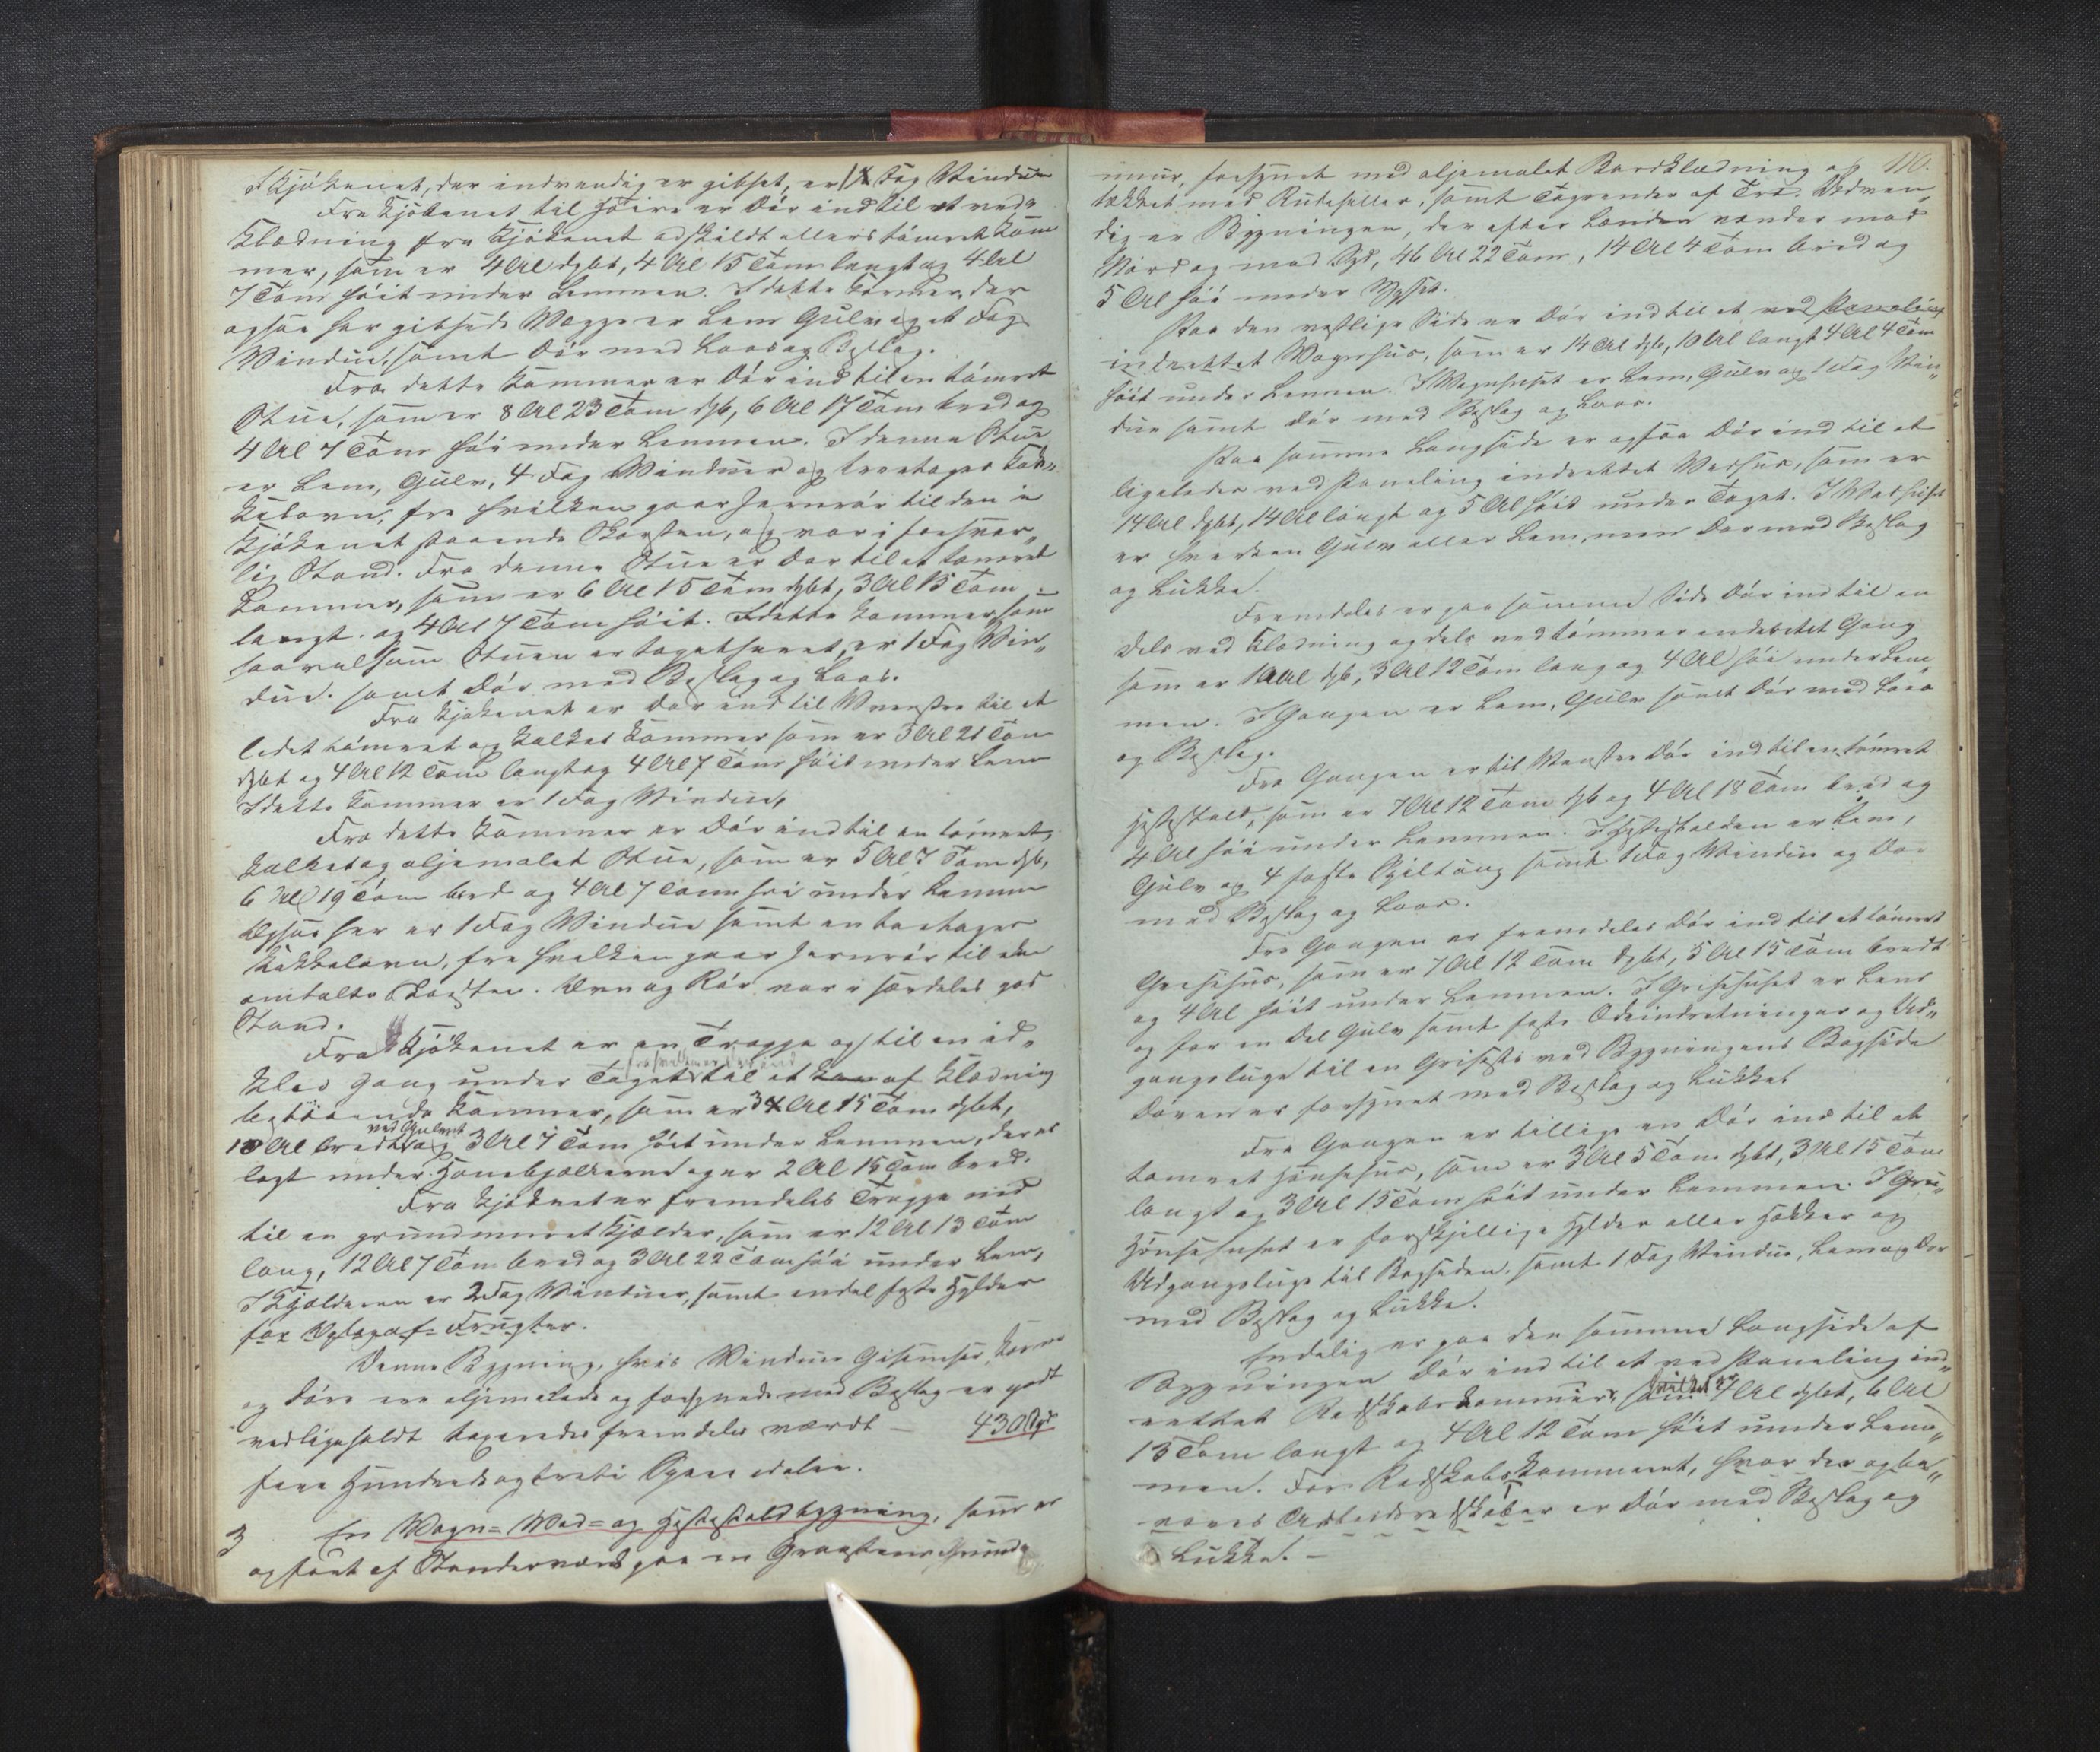 I Kjökenet, der indvendig er gibset, er 1 Fag Vindue
Fra Kjökenet til Höire er Dör ind til et ved
Klædning fra Kjökenet adskildt ellers tömret Kam
mer, som er 4 Al dybt, 4 Al 15 Tom langt og 4 Al
7 Tom höit under Lemmen. I dette Kammer, der
ogsaa har gibsede Vægge er Lem Gulv og et Fag
Vindue, samt Dör med Laas og Beslag.
Fra dette Kammer er Dör ind til en tömret
Stue, som er 8 Al 23 Tom dyb, 6 Al 17 Tom bred og
4 Al 7 Tom höi under Lemmen. I denne Stue
er Lem, Gulv, 4 Fag Vinduer og treetages Kak„
kelovn, fra hvilken gaar Jernrör til den i
Kjökenet staaende Skorsten, og var i forsvar„
lig Stand. Fra denne Stue er Dör til et tömret
Kammer, som er 6 Al 15 Tom dybt, 3 Al 15 Tom
langt og 4 Al 7 Tom höit. I dette Kammer, som
saavelsom Stuen er tapetseret, er 1 Fag Vin„
due samt Dör med Beslag og Laas.
Fra Kjökenet er Dör ind til Venstre til et
lidet tömret og kalket Kammer som er 3 Al 21 Tom
dybt og 4 Al 12 Tom langt og 4 Al 7 Tom höit under Lem
I dette Kammer er 1 Fag Vindue,
Fra dette Kammer er Dör ind til en tömret,
kalket og oljemalet Stue, som er 5 Al 7 Tom dyb,
6 Al 19 Tom bred og 4 Al 7 Tom höi under Lemmen
Ogsaa her er 1 Fag Vindue samt en toetages
Kakkelovn, fra hvilken gaar Jernrör til den
omtalte Skorsten. Ovn og Rör var i særdeles god
Stand.
Fra Kjökenet er en Trappe op til en ud„
klæd Gang under Taget fra hvilken er Dör ind til et af Klædning
bestaaende Kammer, som er 3 Al 15 Tom dybt,
10 Al bredt ved Gulvet og 3 Al 7 Tom höit under Lemmen, der er
lagt under Hanebjælkerne og er 2 Al 15 Tom bred.
Fra Kjökenet er fremdeles Trappe ned
til en grundmuret Kjælder, som er 12 Al 13 Tom
lang, 12 Al 7 Tom bred og 3 Al 22 Tom höi under Lem,
I Kjælderen er 2 Fag Vinduer, samt endel faste Hylder
for Oplag af Frugter.
Denne Bygning, hvis Vinduer Gesimser, Karme
og Döre ere oljemalede og forsynede med Beslag er godt
vedligeholdt taxeredes fremdeles værdt — 430 Spd
fire Hundrede og treti Speciedaler.
3 En Vogn= Ved= og Hestestaldbygning, som er
opfört af Standerværk paa en Graasteens Grund„
110.
muur, forsynet med oljemalet Bordklædning og
tækket med Rudeheller, samt Tagrender af Træ. Udven„
dig er Bygningen, der efter Længden vender mod
Nord og mod Syd, 46 Al 22 Tom, 14 Al 4 Tom bred og
5 Al höi under Ufset.
Paa den vestlige Side er Dör ind til et ved Paneling
indrettet Vognhus, som er 14 Al dyb, 10 Al langt 4 Al 4 Tom
höit under Lemmen. I Vognhuset er Lem, Gulv og 1 Fag Vin„
due samt Dör med Beslag og Laas.
Paa samme Langside er ogsaa Dör ind til et
ligeledes ved Paneling indrettet Vedhus, som er
14 Al dybt, 14 Al langt og 5 Al höit under Taget. I Vedhuset
er hverken Gulv eller Lem, men Dör med Beslag
og Lukke.
Fremdeles er paa samme Side Dör ind til en
dels ved Klædning og dels ved Tömmer indrettet Gang
som er 14 Al dyb, 3 Al 12 Tom lang og 4 Al höi under Lem„
men. I Gangen er Lem, Gulv samt Dör med Laas
og Beslag.
Fra Gangen er til Venstre Dör ind til en tömret
Hestestald, som er 7 Al 12 Tom dyb og 4 Al 18 Tom bred og
4 Al höi under Lemmen. I Hestestalden er Lem,
Gulv og 4 faste Spiltaug samt 1 Fag Vindue og Dör
med Beslag og Laas.
Fra Gangen er fremdeles Dör ind til et tömret
Grisehus, som er 7 Al 12 Tom dybt, 5 Al 15 Tom bredt
og 4 Al höit under Lemmen. I Grisehuset er Lem
og for en Del Gulv samt faste Ædeindretninger og Ud„
gangsluge til en Grisesti ved Bygningens Bagside
Dören er forsynet med Beslag og Lukke.
Fra Gangen er tillige en Dör ind til et
tömret Hönsehus, som er 3 Al 5 Tom dybt, 3 Al 15 Tom
langt og 3 Al 15 Tom höit under Lemmen. I
Hönsehuset er forskjellige Hylder eller Hækker og
Udgangsluge til Bagsiden, samt 1 Fag Vindue, Lem og Dör
med Beslag og Lukke.
Endelig er paa den samme Langside af
Bygningen Dör ind til et ved Paneling ind„
rettet Redskabskammer, hvilket er 7 Al dybt, 6 Al
13 Tom langt og 4 Al 12 Tom höit under Lem„
men. For Redskabskammeret, hvor der opbe„
vares Arbeidsredskaber er Dör med Beslag og
Lukke. —